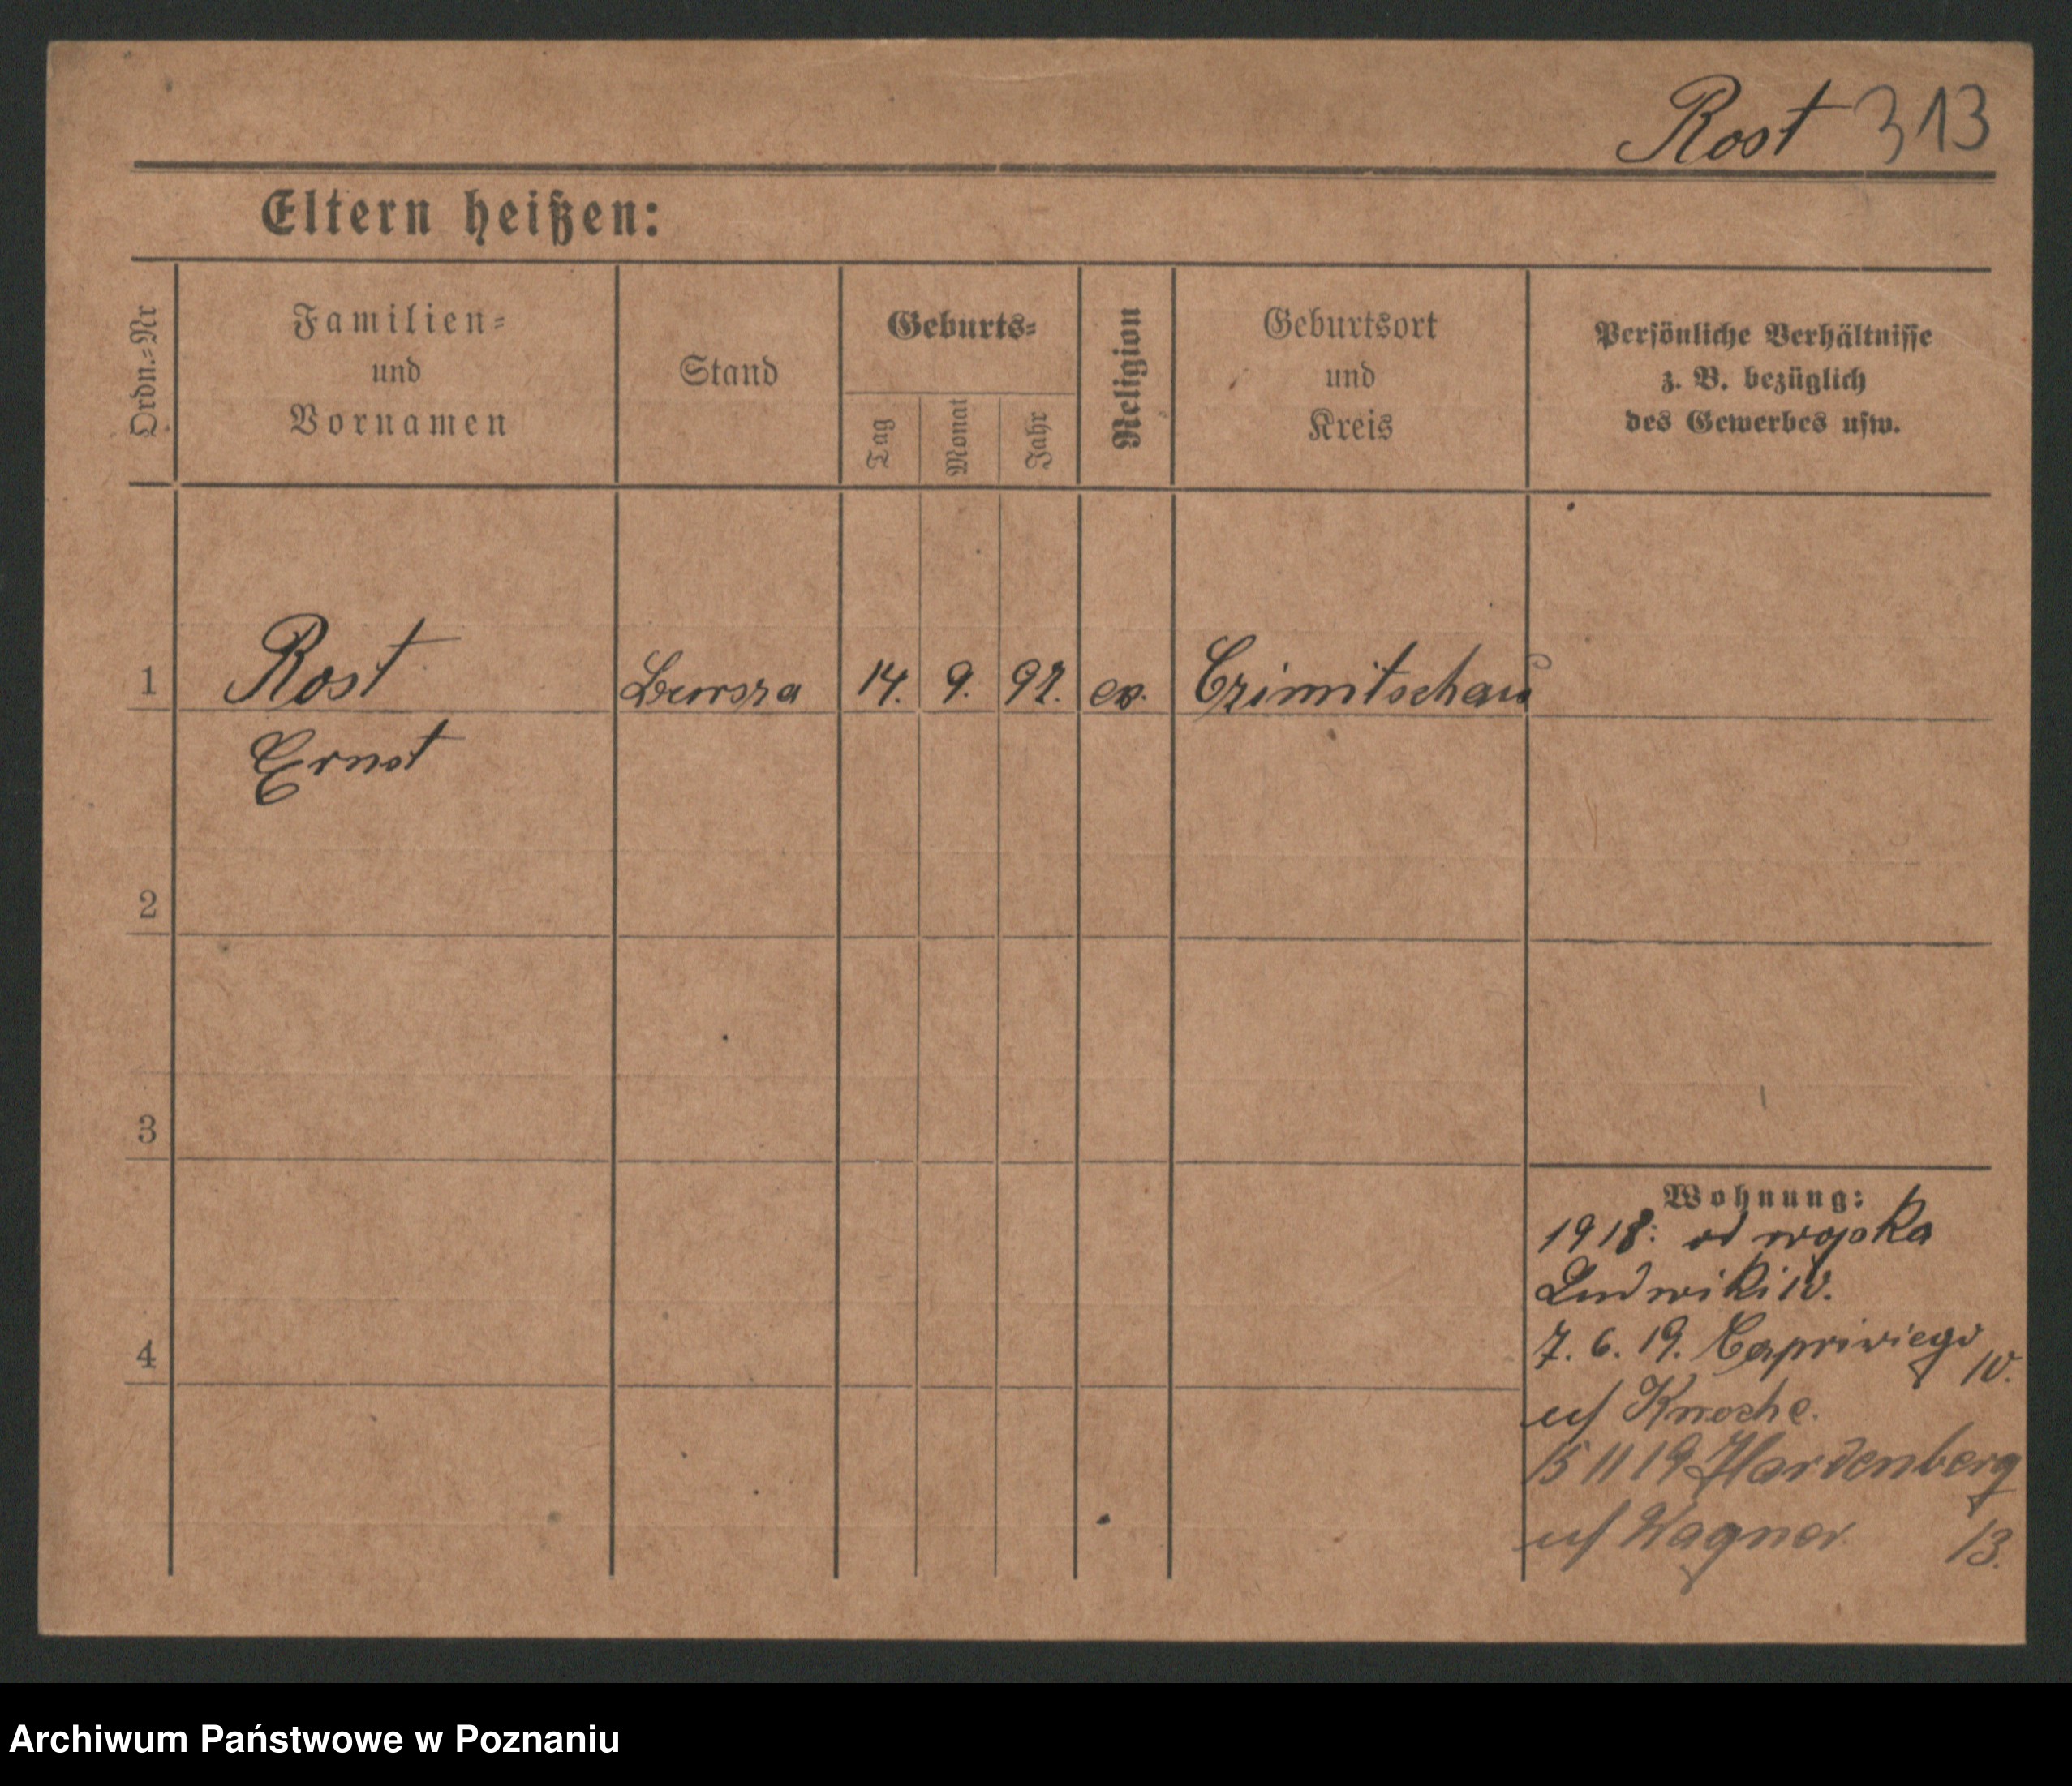 Rost 313
Eltern heißen:
Ordn.-Nr
Familien-
und
Vornamen
Stand
Geburts-
Tag
Monat
Jahr
Religion
Geburtsort
und
Kreis
Persönliche Verhältnisse
z. B. bezüglich
des Gewerbes usw.
1 Rost 14. 9. 97. ev. Crimitschau
Ernst
2
3
4
Wohnung:
1918: od wojska
Ludwiki 10.
7. 6. 19. Capriviego
10.
u/ Knoche.
15 11 19 Hardenberg
u/ Wagner 13.
Archiwum Państwowe w Poznaniu